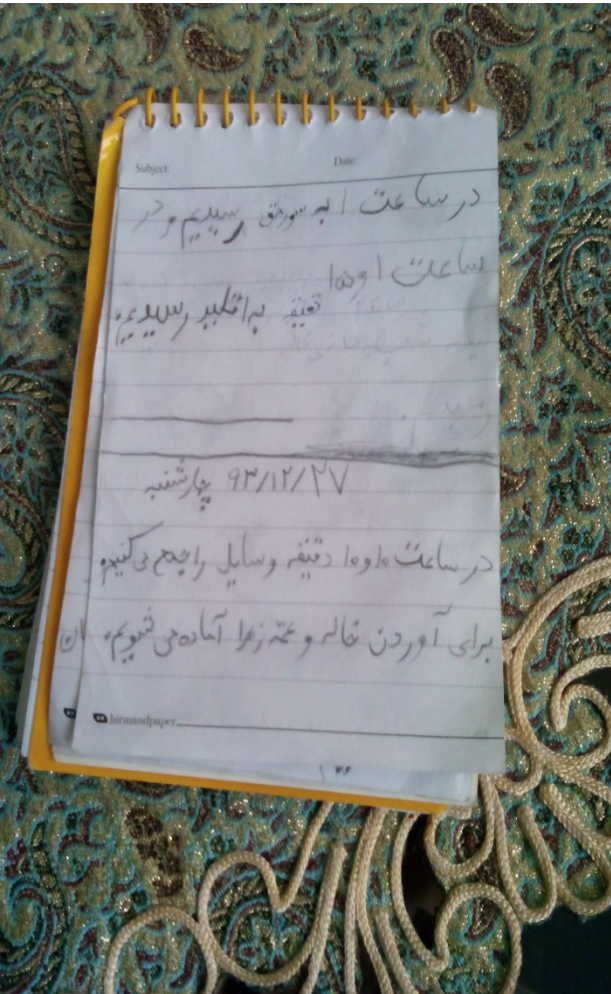 Subject: Date:
در ساعت ۱ به سورمق رسیدیم و در
ساعت ۱ و ۱۵
دقیقه به اقلید رسیدیم.
۹۳/۱۲/۲۷ چهارشنبه
در ساعت ۱۰ و ۱۵ دقیقه وسایل را جمع می‌کنیم.
برای آوردن خاله و عمّه زهرا آماده می شویم.
hirmandpaper